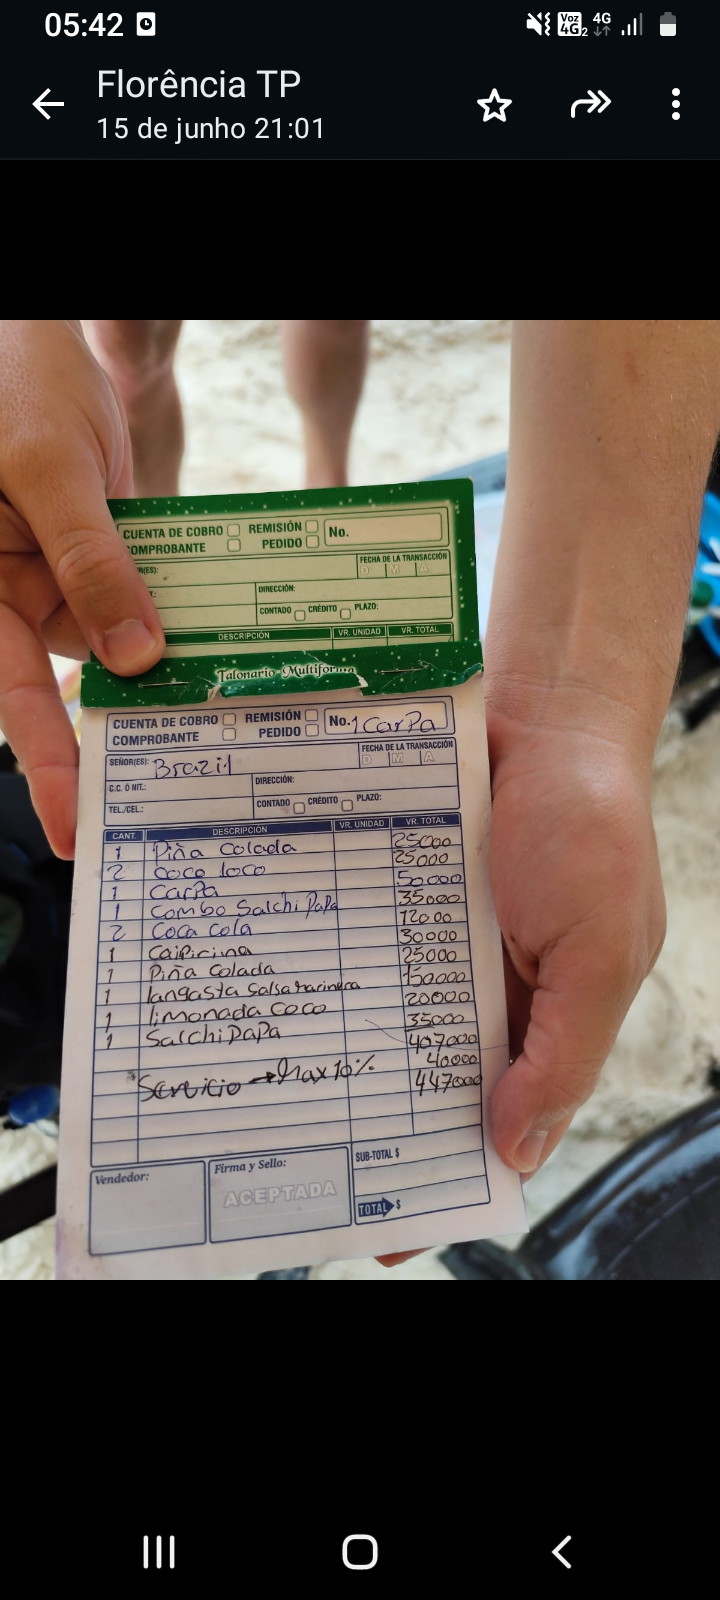 05:42
Voz 4G2 4G
Florência TP
15 de junho 21:01
CUENTA DE COBRO REMISIÓN No.
COMPROBANTE PEDIDO
R(ES): FECHA DE LA TRANSACCIÓN
D M A
T.: DIRECCIÓN:
CONTADO CRÉDITO PLAZO:
DESCRIPCIÓN VR. UNIDAD VR. TOTAL
Talonario Multiforma
CUENTA DE COBRO REMISIÓN No. 1 CarPa
COMPROBANTE PEDIDO
SEÑOR(ES): Brazil FECHA DE LA TRANSACCIÓN
D M A
C.C. Ó NIT.: DIRECCIÓN:
TEL./CEL.: CONTADO CRÉDITO PLAZO:
CANT. DESCRIPCIÓN VR. UNIDAD VR. TOTAL
1 Piña Colada 25000
2 coco loco 25000
1 CarPa 50000
1 combo Salchi PaPa 35000
2 Coca Cola 12000
1 CaiPirina 30000
1 Piña Colada 25000
1 langasta Salsa marinera 150000
1 limonada Coco 20000
1 SalchiPaPa 35000
407000
Servicio → Max 10% 40000
447000
Vendedor: Firma y Sello: SUB-TOTAL $
ACEPTADA
TOTAL $